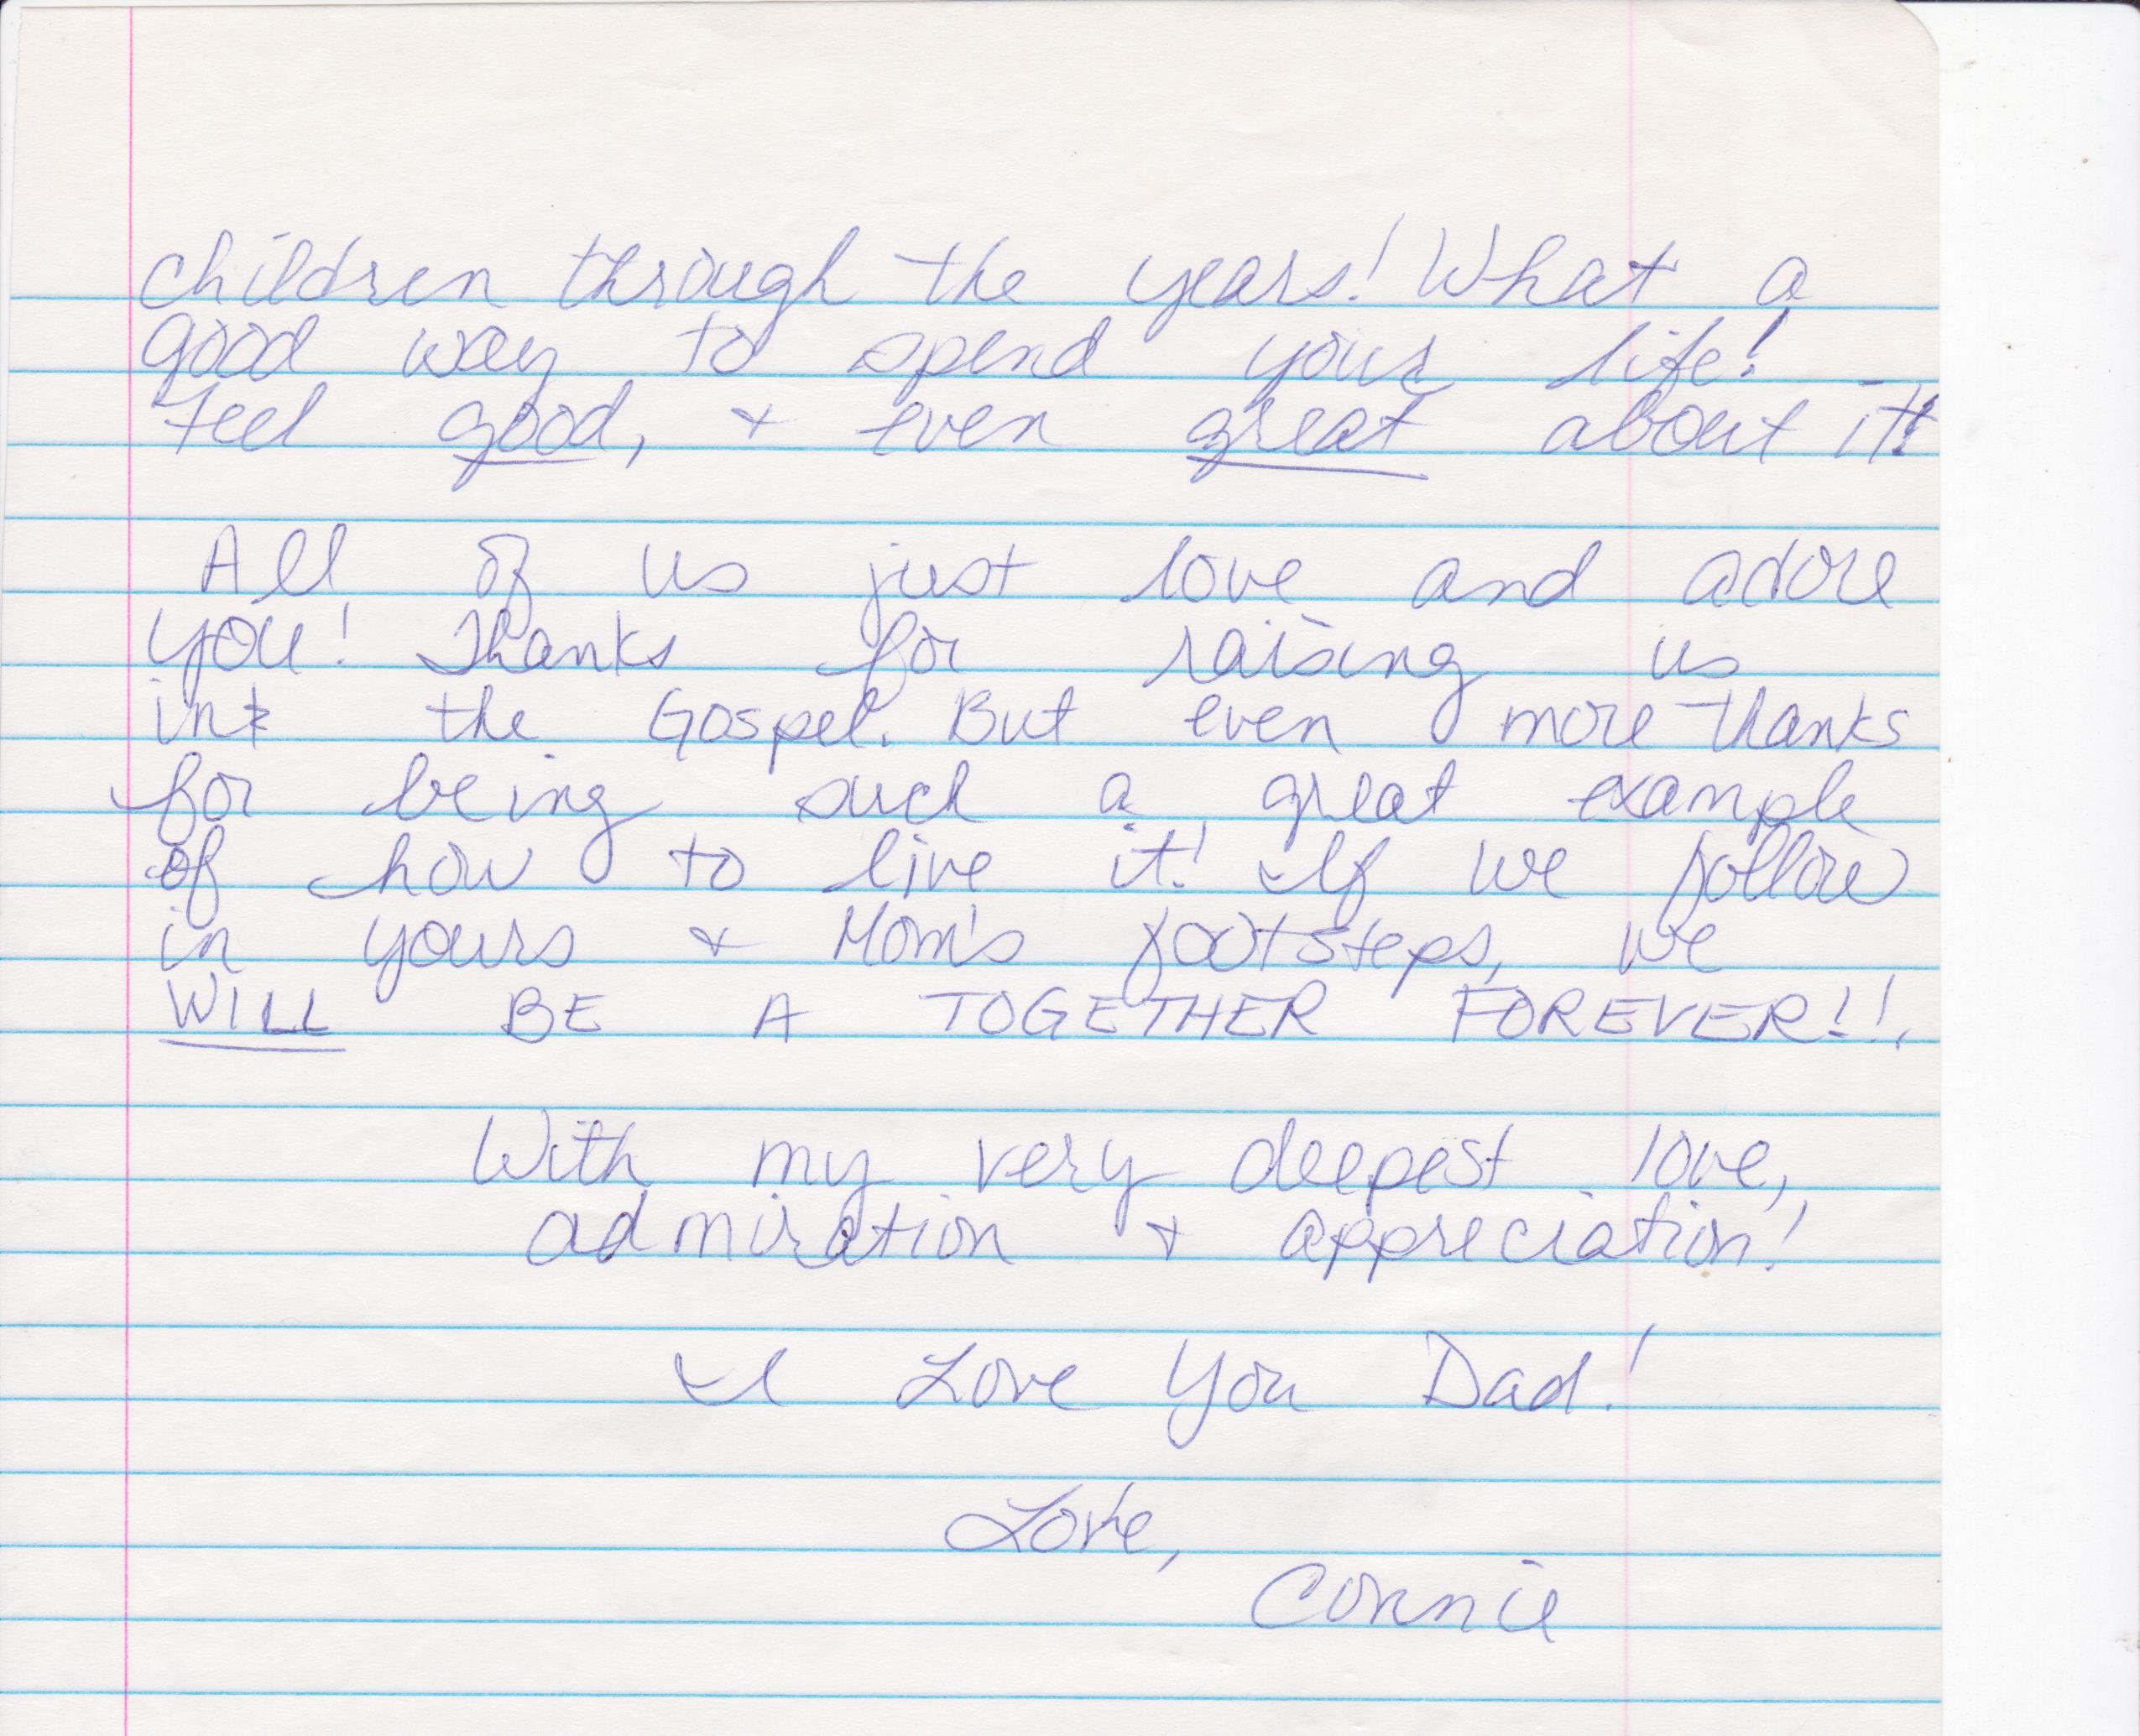 children through the years! What a
good way to spend your life!
Feel good, & even great about it!
All of us just love and adore
you! Thanks for raising us
in the Gospel. But even more thanks
for being such a great example
of how to live it! If we follow
in yours & Mom's footsteps, we
WILL BE A TOGETHER FOREVER!!
With my very deepest love,
admiration & appreciation!
I Love You Dad!
Love,
Connie